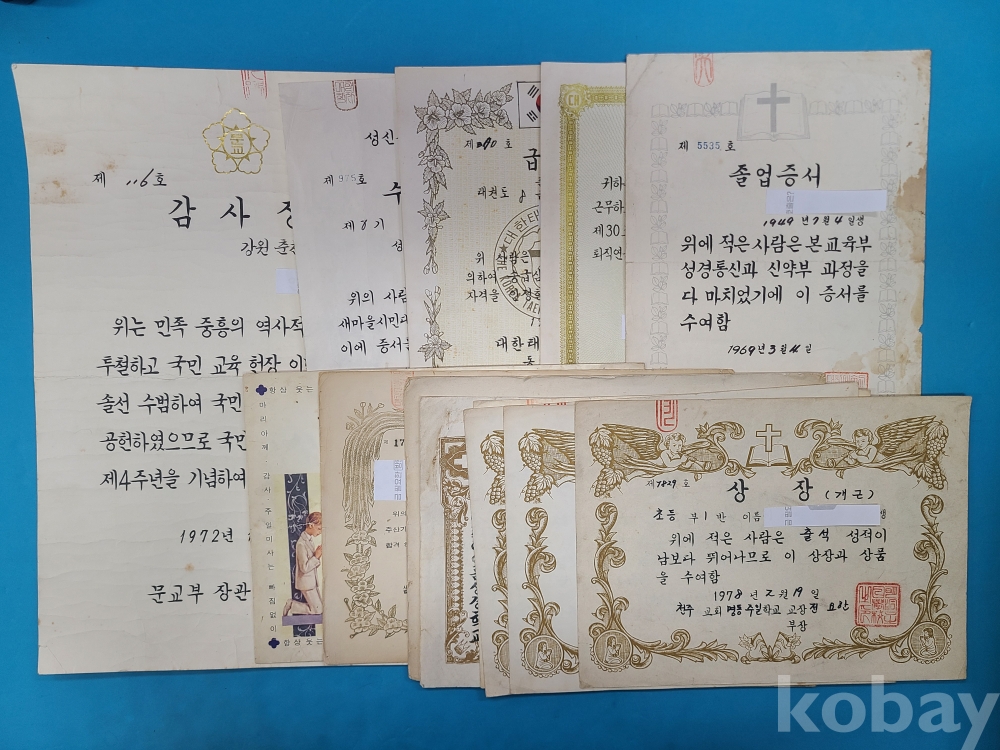 제 116 호
감 사 장
강원 춘천
위는 민족 중흥의 역사적
투철하고 국민 교육 헌장 이
솔선 수범하여 국민
공헌하였으므로 국민
제4주년을 기념하여
1972년
문교부 장관
성신
제 975 호
수
제 8 기
성
위의 사람
새마을시민대
이에 증서를
제 호
급
태권도
위 사람은
의하여
자격을
대한태
귀하
근무하
제30
퇴직연
제 5535 호
졸업증서
1949 년 7 월 4 일생
위에 적은 사람은 본교육부
성경통신과 신약부 과정을
다 마치었기에 이 증서를
수여함
1969 년 3 월 일
항상 웃는
마리아께 감사·주일미사는 빠짐없이
항상 웃는
17
위의
주산기
합격
제 7829 호
상 장 (개근)
초등 부 1 반 이름 생
위에 적은 사람은 출석 성적이
남보다 뛰어나므로 이 상장과 상품
을 수여함
1978 년 2 월 19 일
천주 교회 명동 주일학교 교장 전 요한
부장
kobay